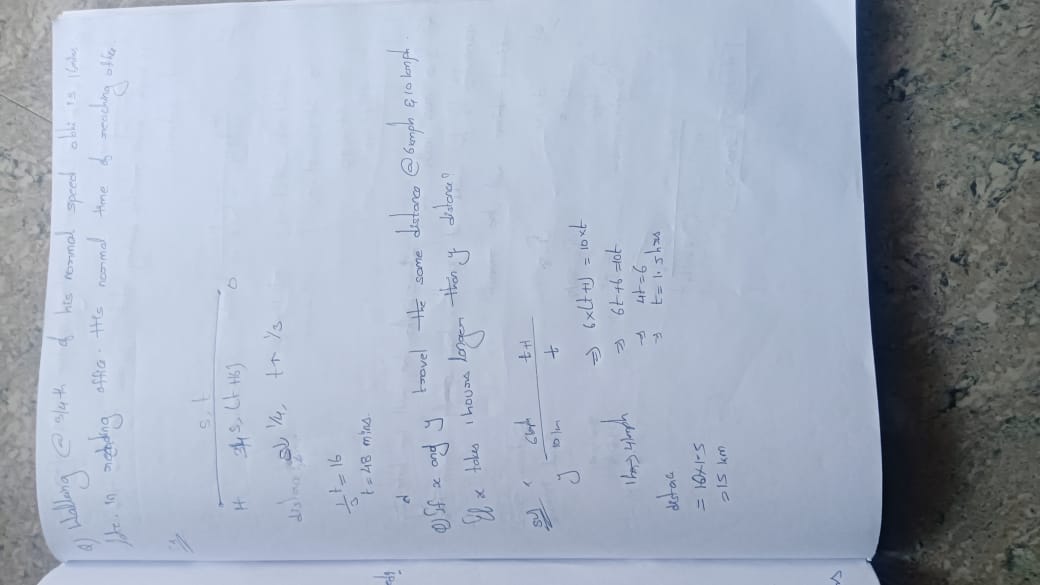 Q) Walking @ 3/4th of his normal speed abhi is 16mins
late in reaching office. His normal time of reaching office.
S, t
H O
3/4 S, (t+16)
distance 1/4, t↑ 1/3
1/3 t = 16
t = 48 mins.
Q) If x and y travel the same distance @ 6kmph & 10 kmph.
If x takes 1 hours longer than y distance?
sol x 6kmph t+1
y 10 km t
⇒ 6x(t+1) = 10xt
1hr → 4kmph ⇒ 6t+6=10t
⇒ 4t=6
⇒ t=1.5hrs
= 10x1.5
= 15 km